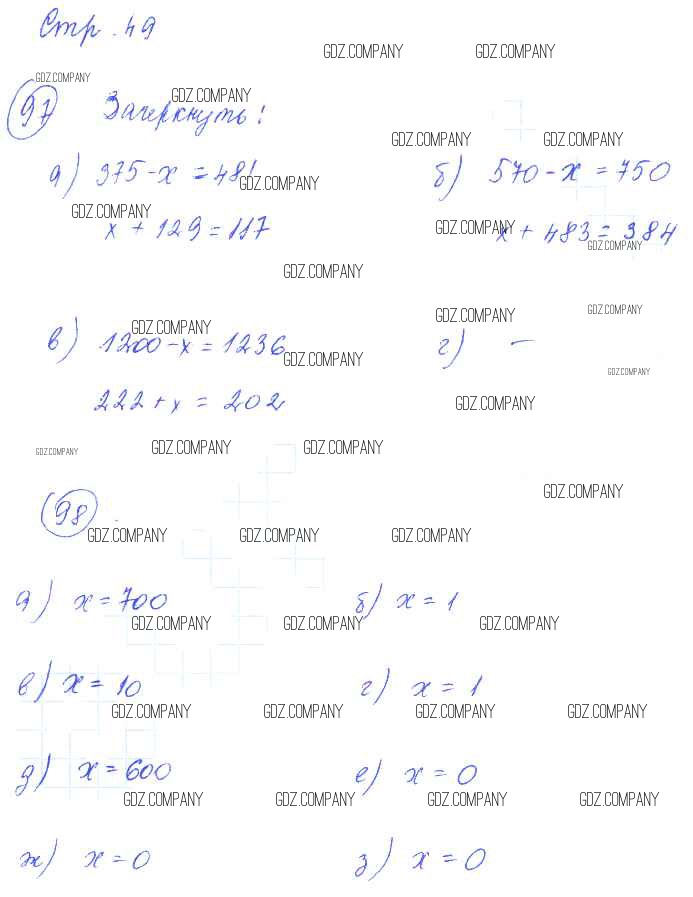 Стр. 49
GDZ.COMPANY GDZ.COMPANY
GDZ.COMPANY
97 Зачеркнуть! GDZ.COMPANY
GDZ.COMPANY GDZ.COMPANY
а) 375 - x = 481 б) 570 - x = 750
GDZ.COMPANY
GDZ.COMPANY GDZ.COMPANY
x + 129 = 117 x + 483 = 384
GDZ.COMPANY
GDZ.COMPANY
GDZ.COMPANY GDZ.COMPANY GDZ.COMPANY
в) 1200 - x = 1236 г) —
GDZ.COMPANY GDZ.COMPANY
222 + x = 202 GDZ.COMPANY
GDZ.COMPANY GDZ.COMPANY GDZ.COMPANY
GDZ.COMPANY
98
GDZ.COMPANY GDZ.COMPANY GDZ.COMPANY
а) x = 700 б) x = 1
GDZ.COMPANY GDZ.COMPANY GDZ.COMPANY
в) x = 10 г) x = 1
GDZ.COMPANY GDZ.COMPANY GDZ.COMPANY GDZ.COMPANY
д) x = 600 е) x = 0
GDZ.COMPANY GDZ.COMPANY GDZ.COMPANY GDZ.COMPANY
ж) x = 0 з) x = 0